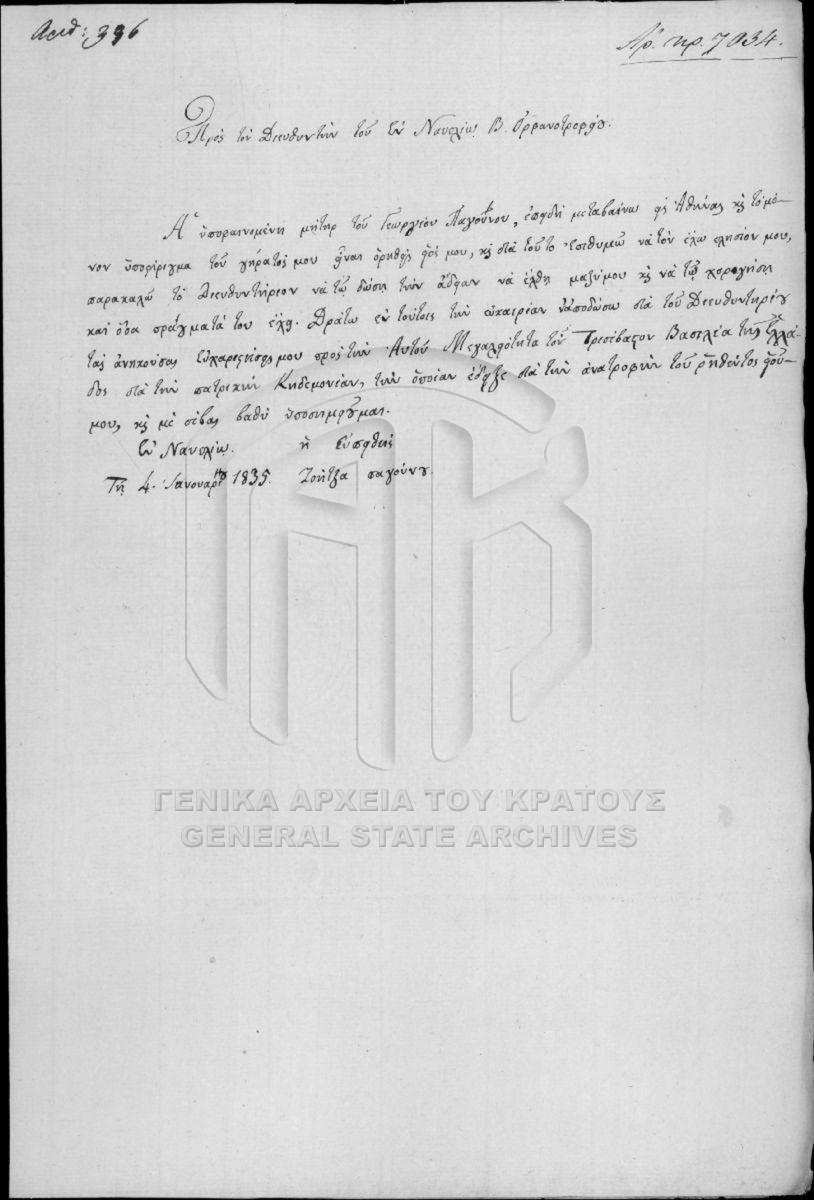 Αριθ: 396
Ἀρ. πρ. 7034.
Πρὸς τὸν Διευθυντὴν τοῦ ἐν Ναυπλίῳ Β. Ὀρφανοτροφείου.
Ἡ ὑποφαινομένη μήτηρ τοῦ Γεωργίου Παγούνου, ἐπειδὴ μεταβαίνω εἰς Ἀθήνας κ τὸ μό-
νον ὑποστήριγμα τοῦ γήρατός μου εἶναι ὁ ῥηθεὶς υἱός μου, κ διὰ τοῦτο ἐπιθυμῶ νὰ τὸν ἔχω πλησίον μου,
παρακαλῶ τὸ Διευθυντήριον νὰ τῷ δώσῃ τὴν ἄδειαν νὰ ἔλθῃ μαζύ μου κ νὰ τῷ χορηγήσῃ
καὶ ὅσα πράγματά του ἔχει. Δράτω ἐν τούτοις τὴν εὐκαιρίαν νἀποδώσω διὰ τοῦ Διευθυντηρίου
τὰς ἀνηκούσας εὐχαριστήσεις μου πρὸς τὴν Αὐτοῦ Μεγαλειότητα τὸν Τρισέβαστον Βασιλέα τῆς Ἑλλά-
δος διὰ τὴν πατρικὴν Κηδεμονίαν, τὴν ὁποίαν ἔδειξε διὰ τὴν ἀνατροφὴν τοῦ ῥηθέντος υἱοῦ
μου, κ μὲ σέβας βαθὺ ὑποσημειοῦμαι.
Ἐν Ναυπλίῳ. ἡ εὐπειθὴς
Τῇ 4. Ἰανουαρίου 1835. Ζοήτζα παγούνου.
ΓΕΝΙΚΑ ΑΡΧΕΙΑ ΤΟΥ ΚΡΑΤΟΥΣ
GENERAL STATE ARCHIVES